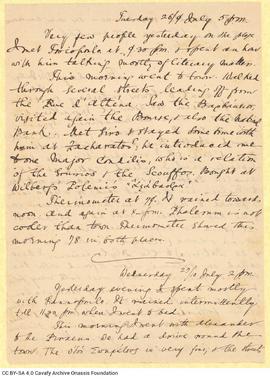 Tuesday 26/9 July 5 p.m.
Very few people yesterday on the
I met Procopoli at 9.30 p.m. & spent an hour
with him talking mostly of literary matters.
This morning went to town. Walked
through several streets leading off from
the Rue d'Athena. Saw the
visited again the Bourse, & also the National
Bank. Met Tsiro & stayed some time with
him at Zacharato's; he introduced me
to one Major Condilio, who is a relation
of the & the Scouffos. Bought at
Wilberg's Polemis'
Thermometer at 78. It rained towards
noon and again at 2 p.m. Phalerum is not
cooler than town. Thermometer showed this
morning 78 in both places.
Wednesday 27/10 July 2 p.m.
Yesterday evening I spent mostly
with It rained intermittently
till 11.20 p.m. when I went to bed.
This morning I went with Alexander
to the Piraeus. We had a drive round the
town. The is very fine, & the
CC BY-SA 4.0 Cavafy Archive Onassis Foundation